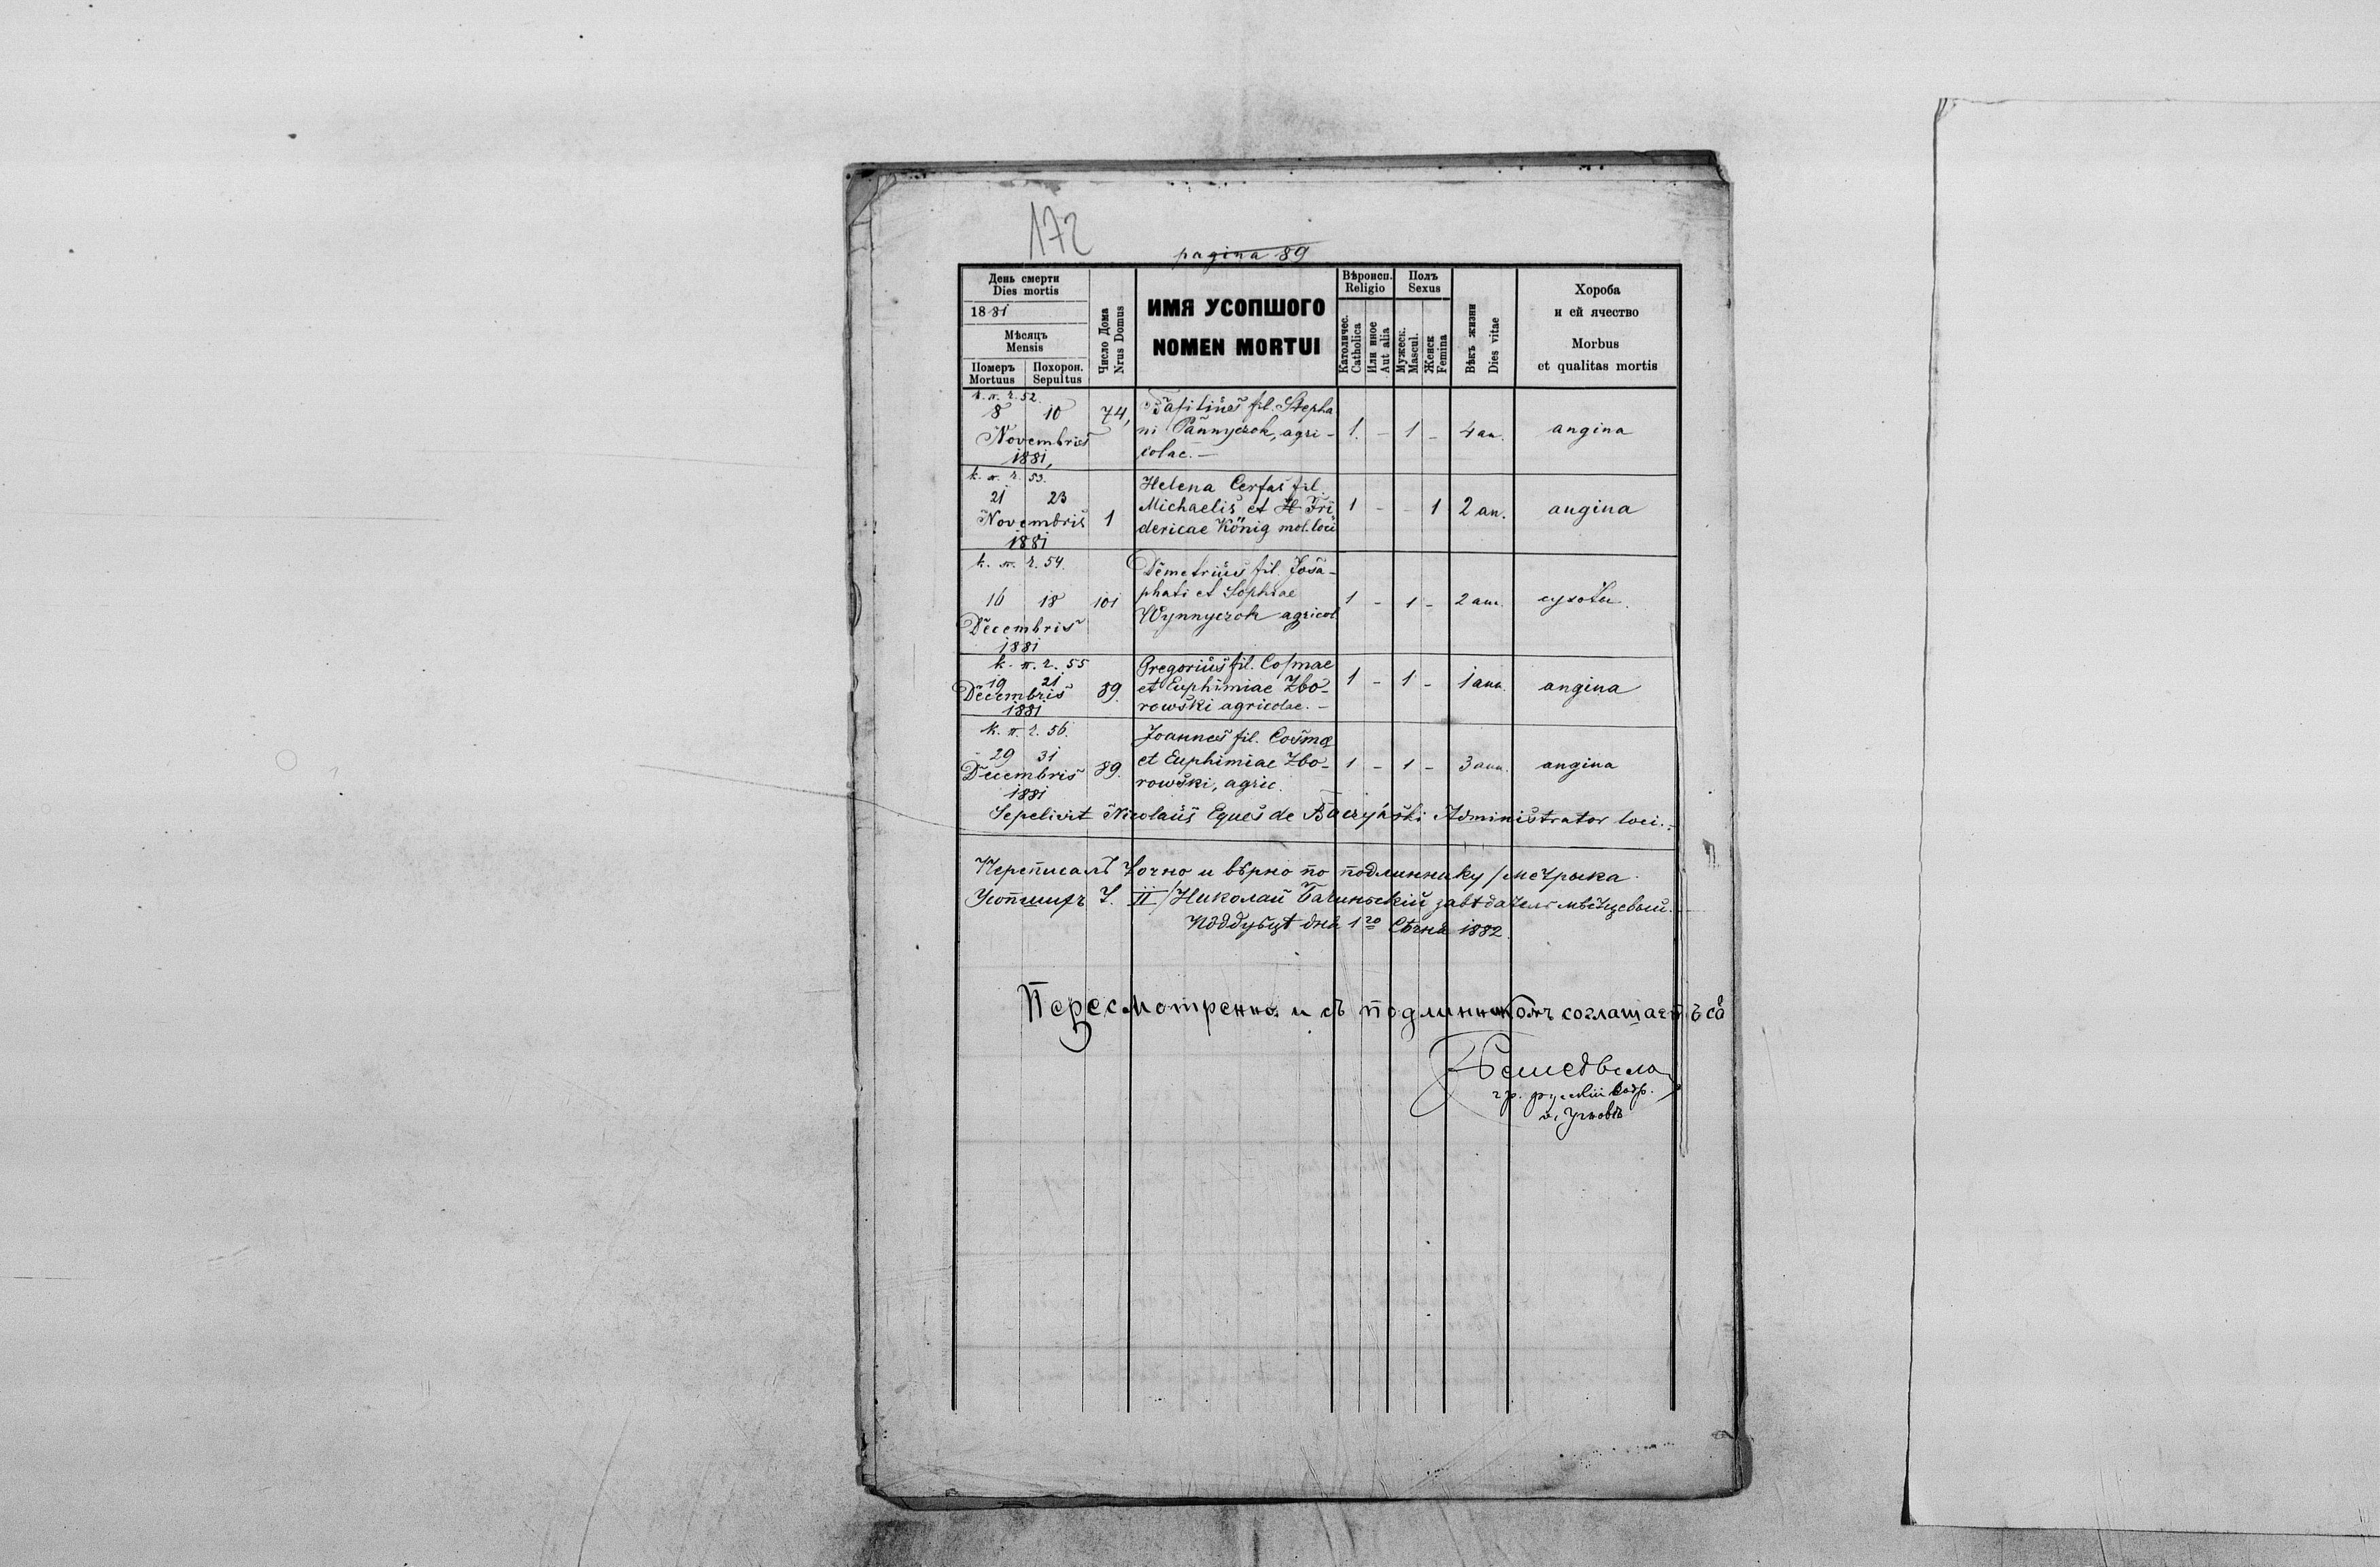 172
pagina 89
День смерти
Dies mortis
1881
Мѣсяцъ
Mensis
Померъ Mortuus
Похорон. Sepultus
Число Дома
Nrus Domus
ИМЯ УСОПШОГО
NOMEN MORTUI
Вѣроисп.
Religio
Католичес.
Catholica
Или иное
Aut alia
Полъ
Sexus
Мужеск.
Mascul.
Женск
Femina
Вѣкъ жизни
Dies vitae
Хороба
и ей ячество
Morbus
et qualitas mortis
к. п. ч. 52.
8 10 74, fil. Stepha
Novembris ni Pannyczok, agri- 1. - 1 - 4 an. angina
1881, colae. -
к. п. ч. 53.
21 23 Helena Cerfas fil.
Novembris 1 Michaelis et H Fri 1 - - 1 2 an. angina
1881 dericae König mol. loci
к. п. ч. 54. Demetrius fil. Josa-
16 18 101 phati et Sophiae 1 - 1 - 2 ann.
Decembris Wynnyczok agricol
1881
к. п. ч. 55 Gregorius fil. Cosmae
19 21
Decembris 89. et Euphimiae Zbo- 1 - 1 - 1 ann. angina
1881 rowski agricolae. -
к. п. ч. 56. Joannes fil. Cosmae
29 31
Decembris 89. et Euphimiae Zbo- 1 - 1 - 3 ann. angina
1881 rowski, agric.
Sepelivit Nicolaus Eques de Baczyński Administrator loci.
Переписалъ точно и вѣрно по подлиннику / метрыка
Усопшихъ Т. II / Николай Бачиньскій завѣдатель мѣстцевый.
Поддубцѣ дня 1го Сѣчня 1882.
Пересмотренно и съ подлинникомъ соглашаетъ ся